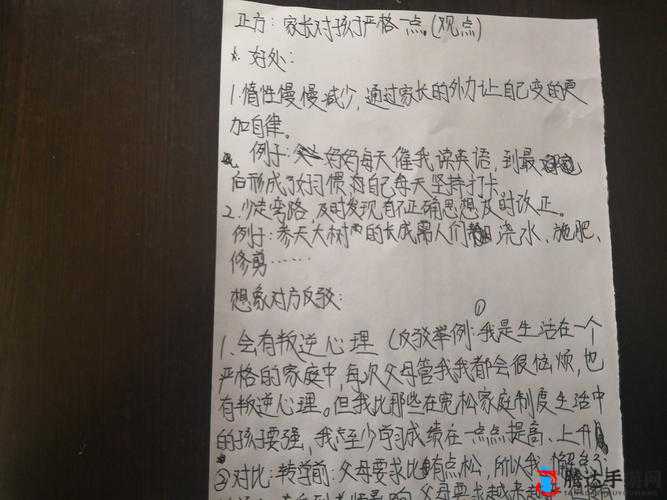 正方：家长对孩子严格一点。(观点)
好处：
1.惰性慢慢减少，通过家长的外力让自己变的更
加自律。
例子：妈妈每天催我读英语，到最
后形成了好习惯 自己每天坚持打卡
2.少走弯路 及时发现有不正确思想及时改正。
例子：参天大树的长成离人们 浇水、施肥、
修剪……
想象对方反驳：
①
1.会有叛逆心理 (反驳举例：我是生活在一个
严格的家庭中，每次父母管我我都会很恼烦，也
有叛逆心理。但我比那些在宽松家庭制度生活中
的孩子要强，我至少学习成绩在一点点提高、上升
②对比：转学前：父母要求比 有点松，所以我
腾达手游网